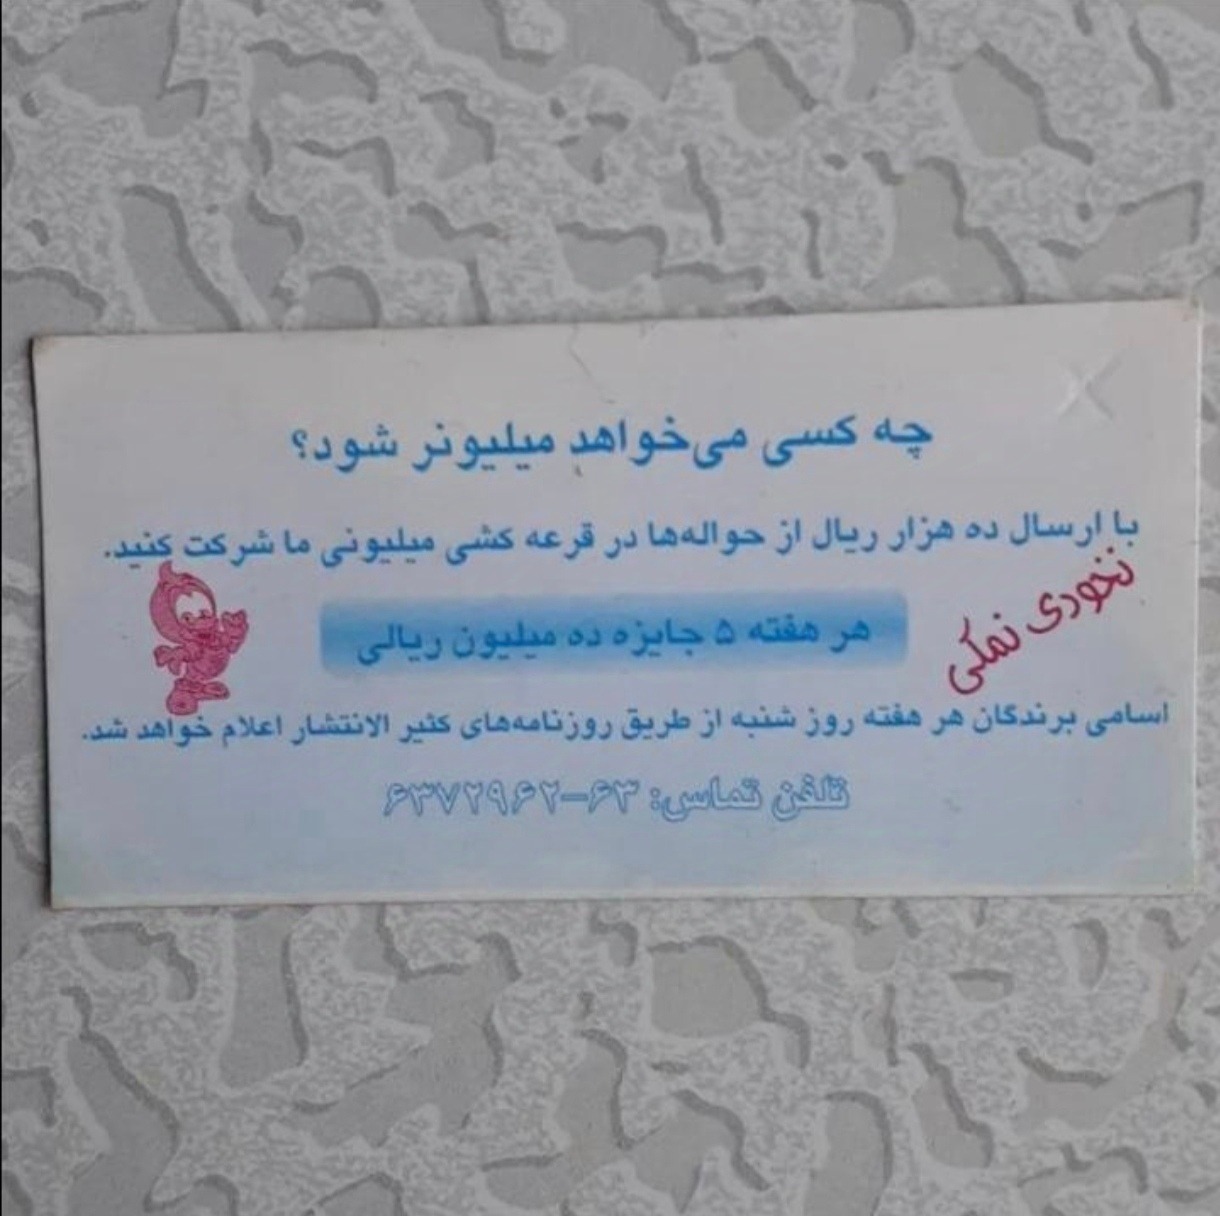 چه کسی می‌خواهد میلیونر شود؟
با ارسال ده هزار ریال از حواله‌ها در قرعه کشی میلیونی ما شرکت کنید.
نخودی نمکی
هر هفته ۵ جایزه ده میلیون ریالی
اسامی برندگان هر هفته روز شنبه از طریق روزنامه‌های کثیر الانتشار اعلام خواهد شد.
تلفن تماس: ۶۳-۶۳۷۲۹۶۲